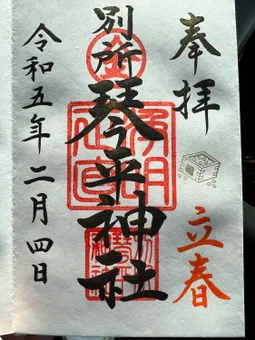 奉拝
立春
別所
琴平神社
令和五年二月四日